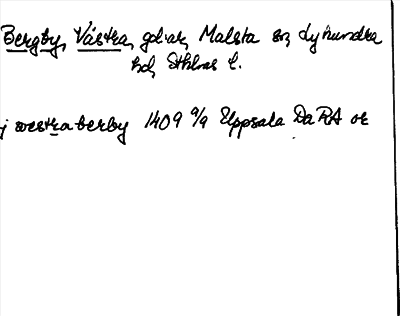 Bergby, Västra, gd:ar, Malsta sn, Lyhundra
hd, Sthlms l.
j westra berby 1409 9/9 Uppsala Da RA or